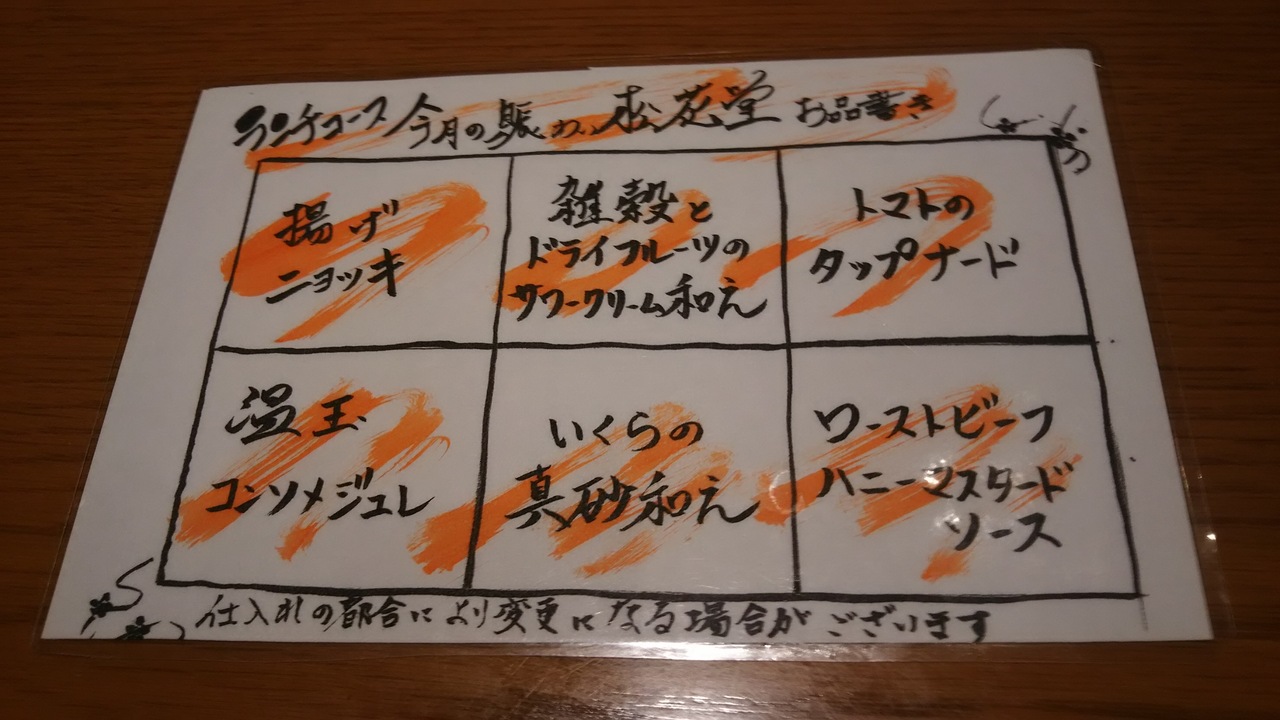 ランチコース 今月の賑わい松花堂 お品書き
揚げ
ニョッキ
雑穀と
ドライフルーツの
サワークリーム和え
トマトの
タップナード
温玉
コンソメジュレ
いくらの
真砂和え
ローストビーフ
ハニーマスタード
ソース
仕入れの都合により変更になる場合がございます